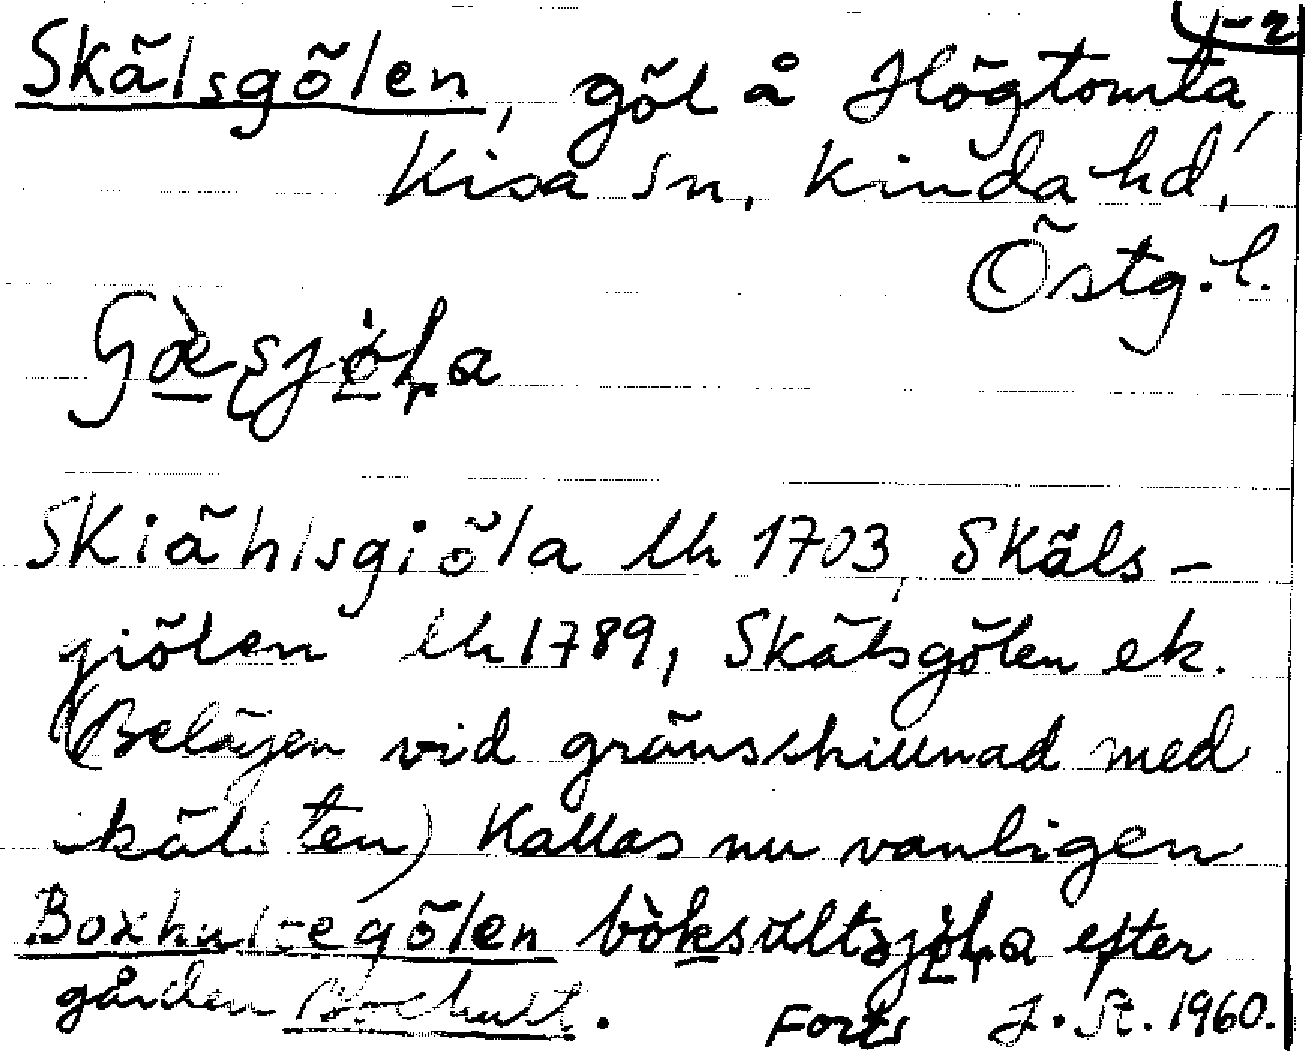 1-2
Skälsgölen, göl å Högtomta,
Kisa sn, Kinda hd,
Östg.l.
Skiählsgiöla lh 1703, Skäls-
giölen lh 1789, Skälsgölen ek.
(Belägen vid gränsskillnad med
ten) Kallas nu vanligen
Boxhultegölen efter
gården Boxhult.
Forts J. St. 1960.